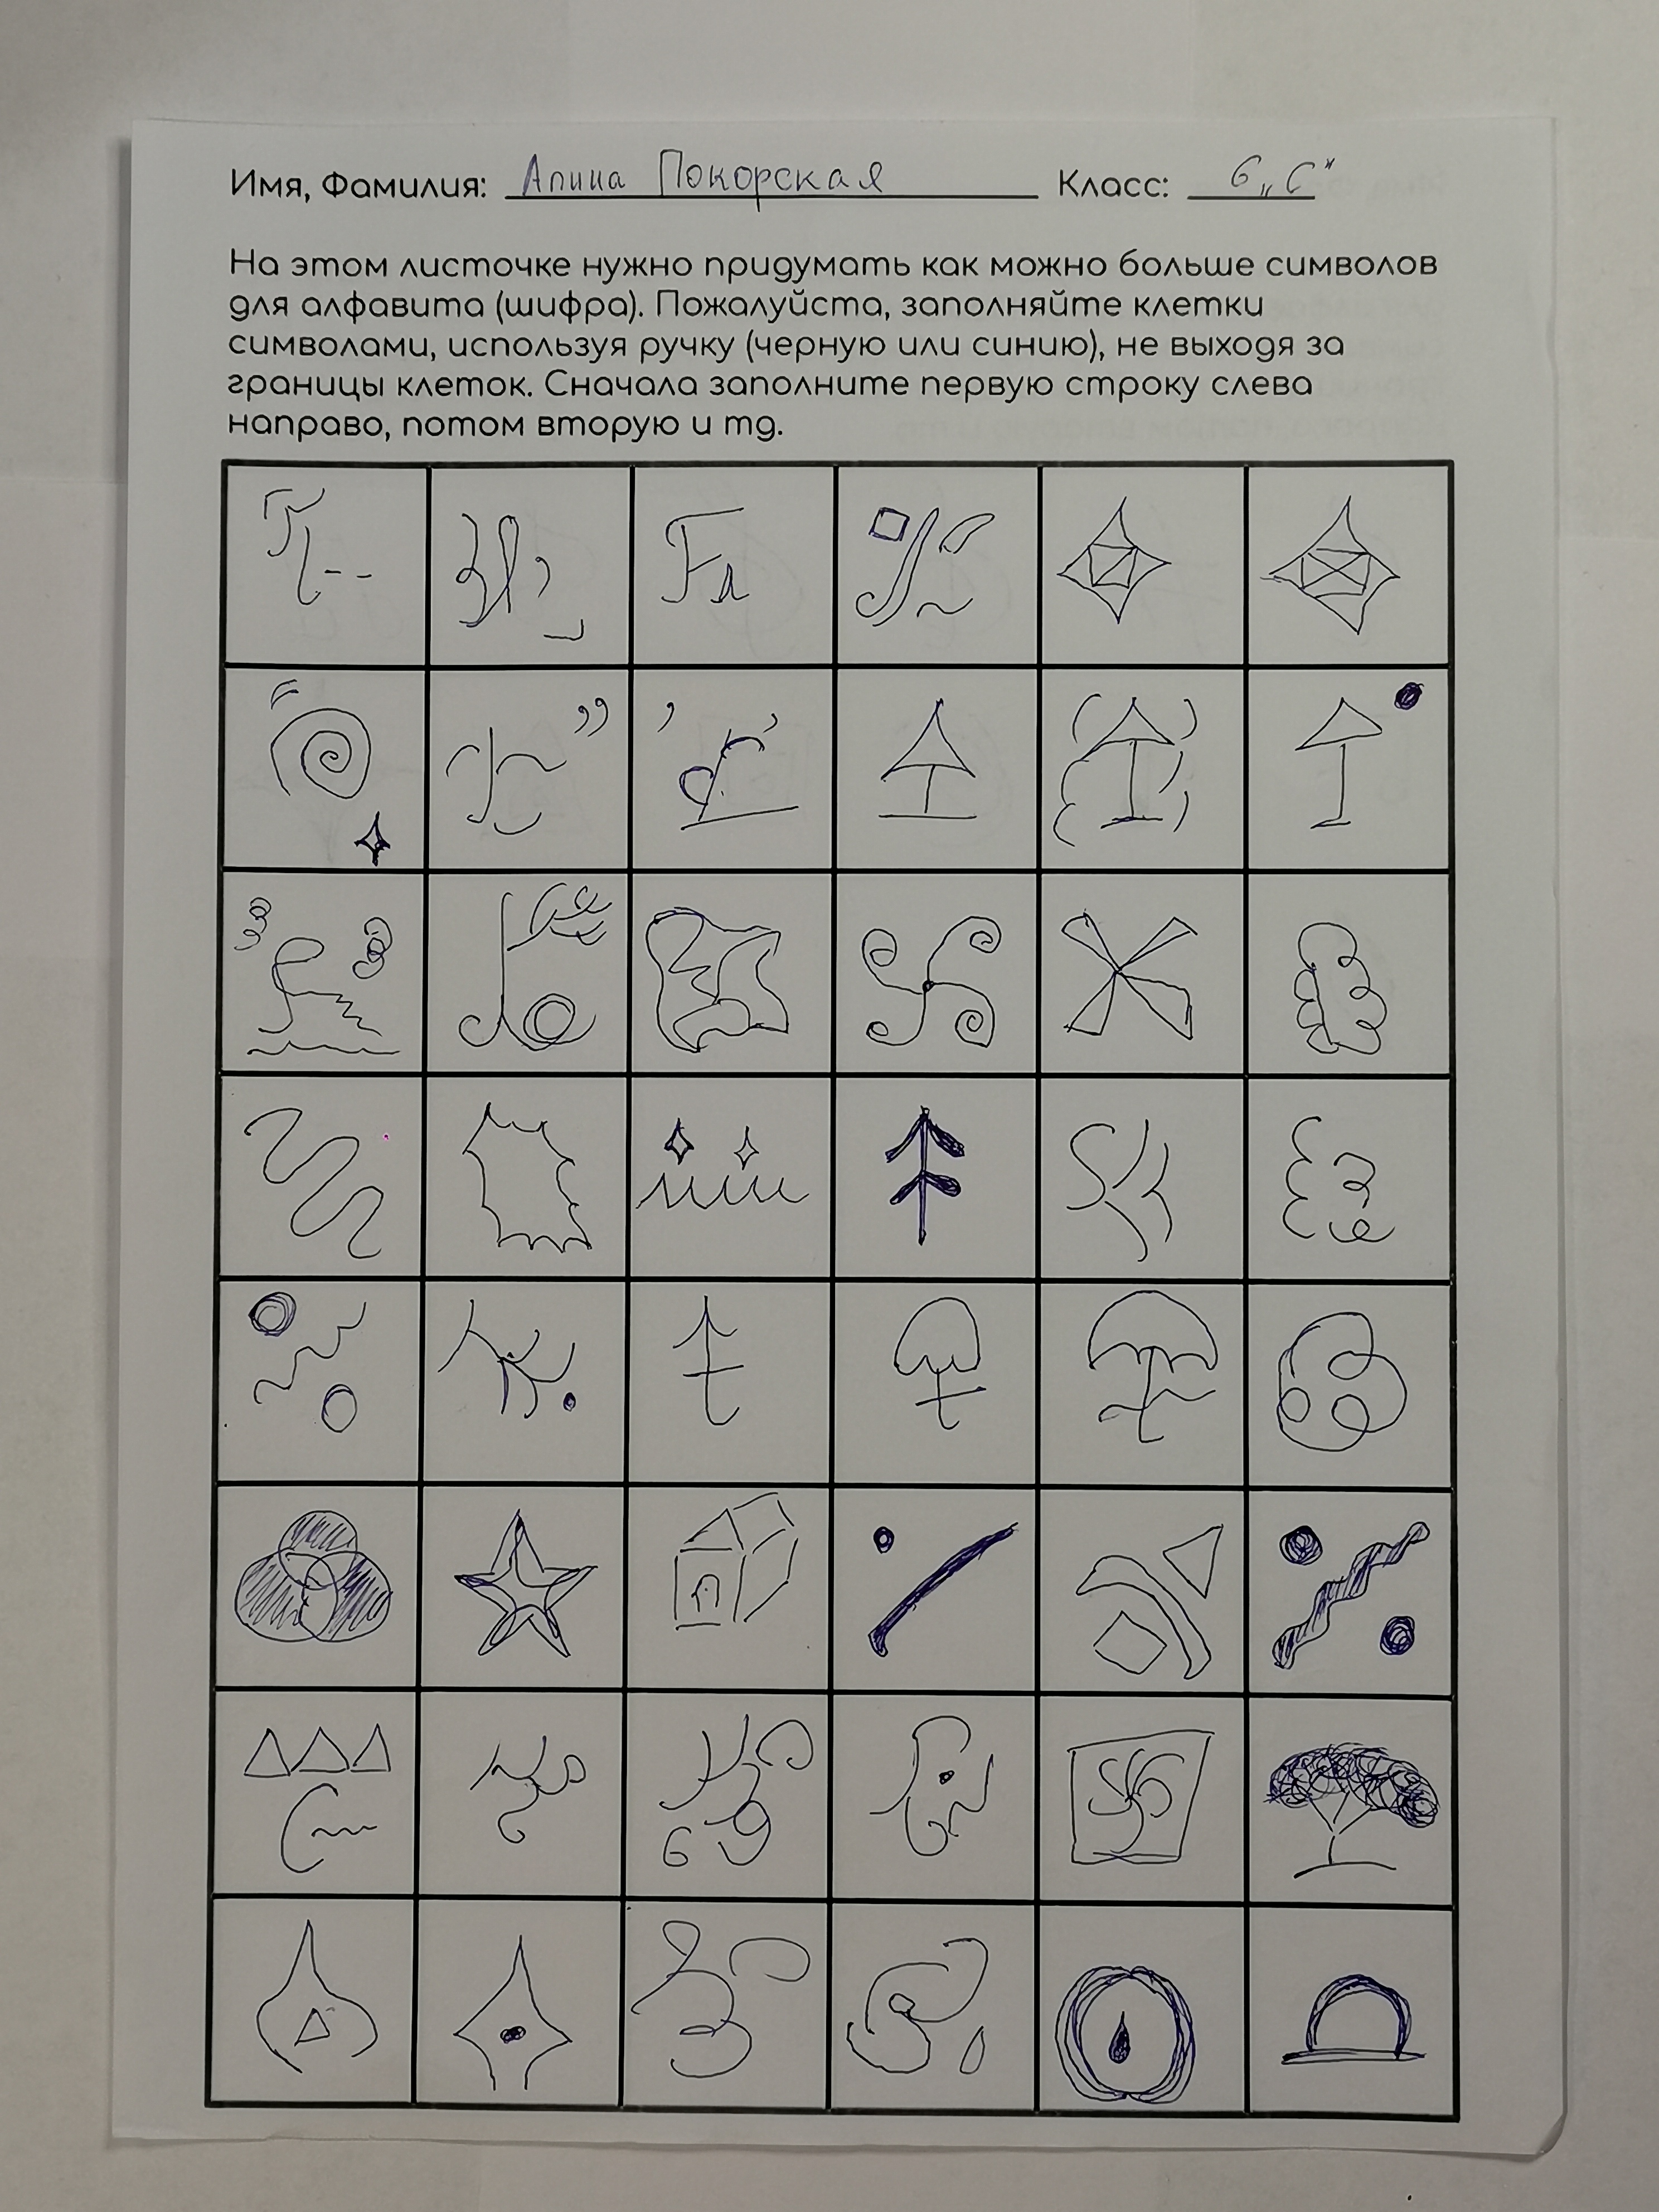 Имя, Фамилия: Алина Покорская Класс: 6 „С"
На этом листочке нужно придумать как можно больше символов
для алфавита (шифра). Пожалуйста, заполняйте клетки
символами, используя ручку (черную или синию), не выходя за
границы клеток. Сначала заполните первую строку слева
направо, потом вторую и тд.